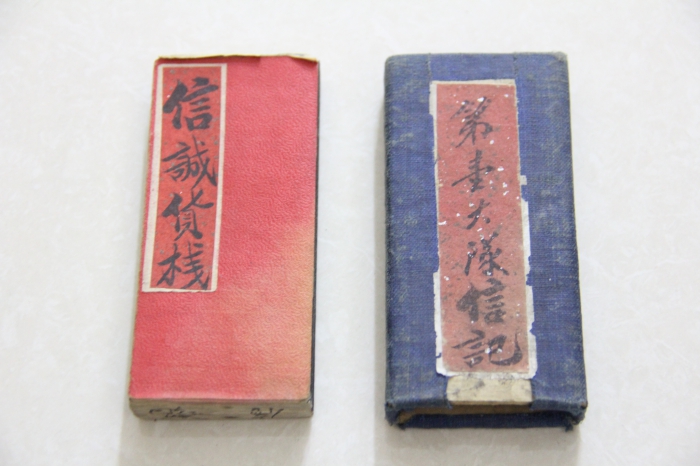 信誠貨栈
第壹大隊信記